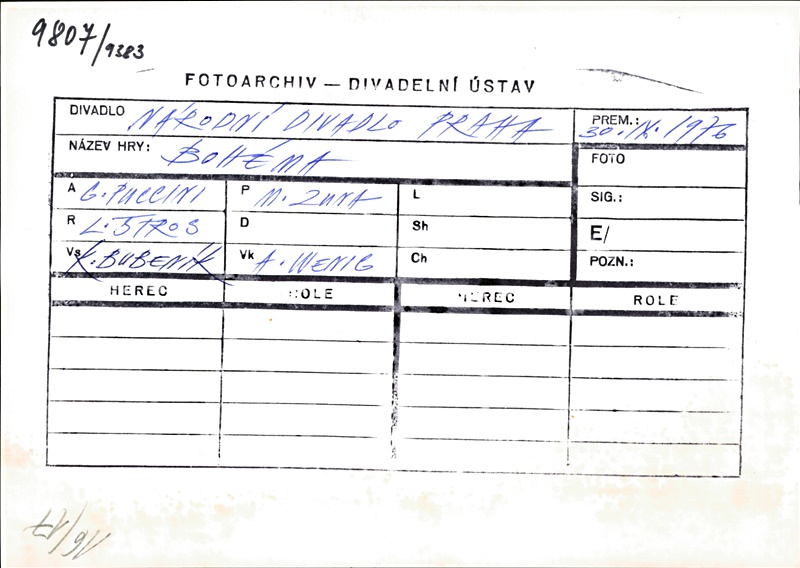 9807/9383
FOTOARCHIV — DIVADELNÍ ÚSTAV
DIVADLO NÁRODNÍ DIVADLO PRAHA
PREM.: 30. IX. 1976
NÁZEV HRY: BOHÉMA
FOTO
A G. PUCCINI P M. ZUNA L
SIG.:
R L. ŠTROS D Sh
E/
Vs K. BUBENÍK Vk A. WENIG Ch
POZN.:
HEREC ROLE HEREC ROLE
16/17